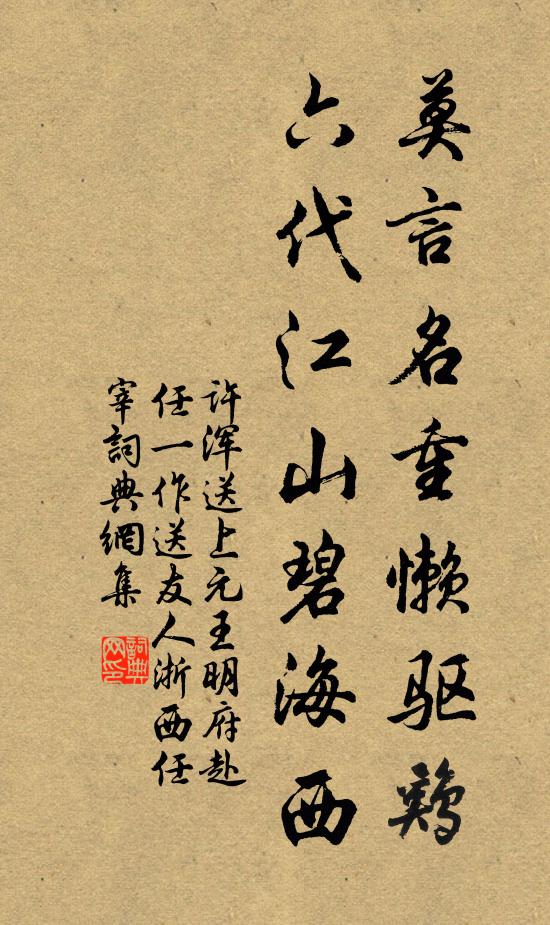 莫言名重懒驱鸡
六代江山碧海西
许浑送上元王明府赴
任一作送友人浙西任
宰詞典網集
詞典
网印